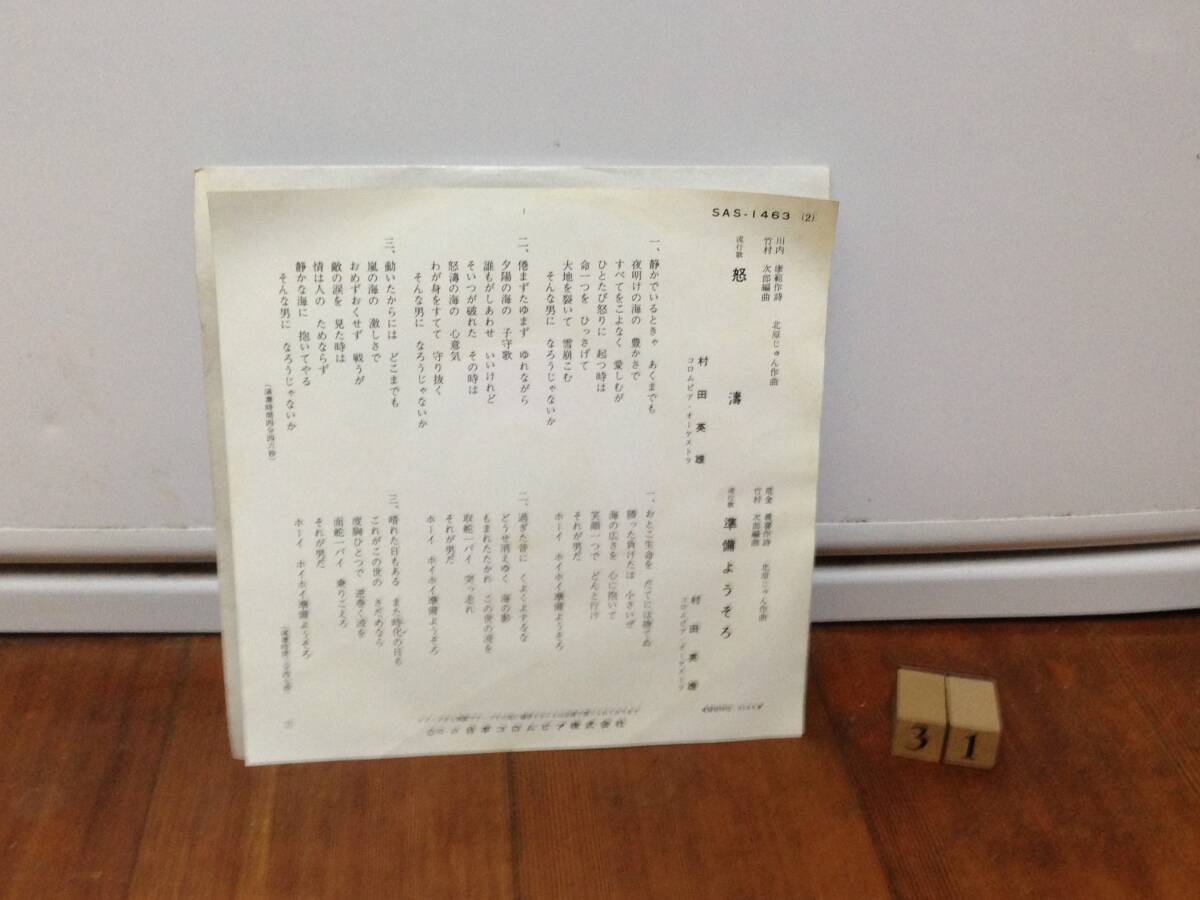 SAS-1463 (2)
川内 康範作詩
竹村 次郎編曲
北原じゅん作曲
流行歌
怒濤
村田英雄
コロムビア・オーケストラ
一、静かでいるときゃ あくまでも
夜明けの海の 豊かさで
すべてをこよなく 愛しむが
ひとたび怒りに 起つ時は
命一つを ひっさげて
大地を裂いて 雪崩こむ
そんな男に なろうじゃないか
二、倦まずたゆまず ゆれながら
夕陽の海の 子守歌
誰もがしあわせ いいけれど
そいつが破れた その時は
怒濤の海の 心意気
わが身をすてて 守り抜く
そんな男に なろうじゃないか
三、動いたからには どこまでも
嵐の海の 激しさで
おめずおくせず 戦うが
敵の涙を 見た時は
情は人の ためならず
静かな海に 抱いてやる
そんな男に なろうじゃないか
(演奏時間四分四六秒)
竹村 次郎編曲
北原じゅん作曲
流行歌
準備ようそろ
村田英雄
コロムビア・オーケストラ
一、おとこ生命を だてには捨てぬ
勝った負けたは 小さいぜ
海の広さを 心に抱いて
笑顔一つで どんと行け
それが男だ
ホーイ ホイホイ準備ようそろ
二、過ぎた昔に くよくよするな
どうせ消えゆく 海の影
もまれたたかれ この世の波を
取舵一パイ 突っ走れ
それが男だ
ホーイ ホイホイ準備ようそろ
三、晴れた日もある また時化の日も
これがこの世の さだめなら
度胸ひとつで 逆巻く波を
面舵一パイ 乗りこえろ
それが男だ
ホーイ ホイホイ準備ようそろ
日本コロムビア株式会社
31